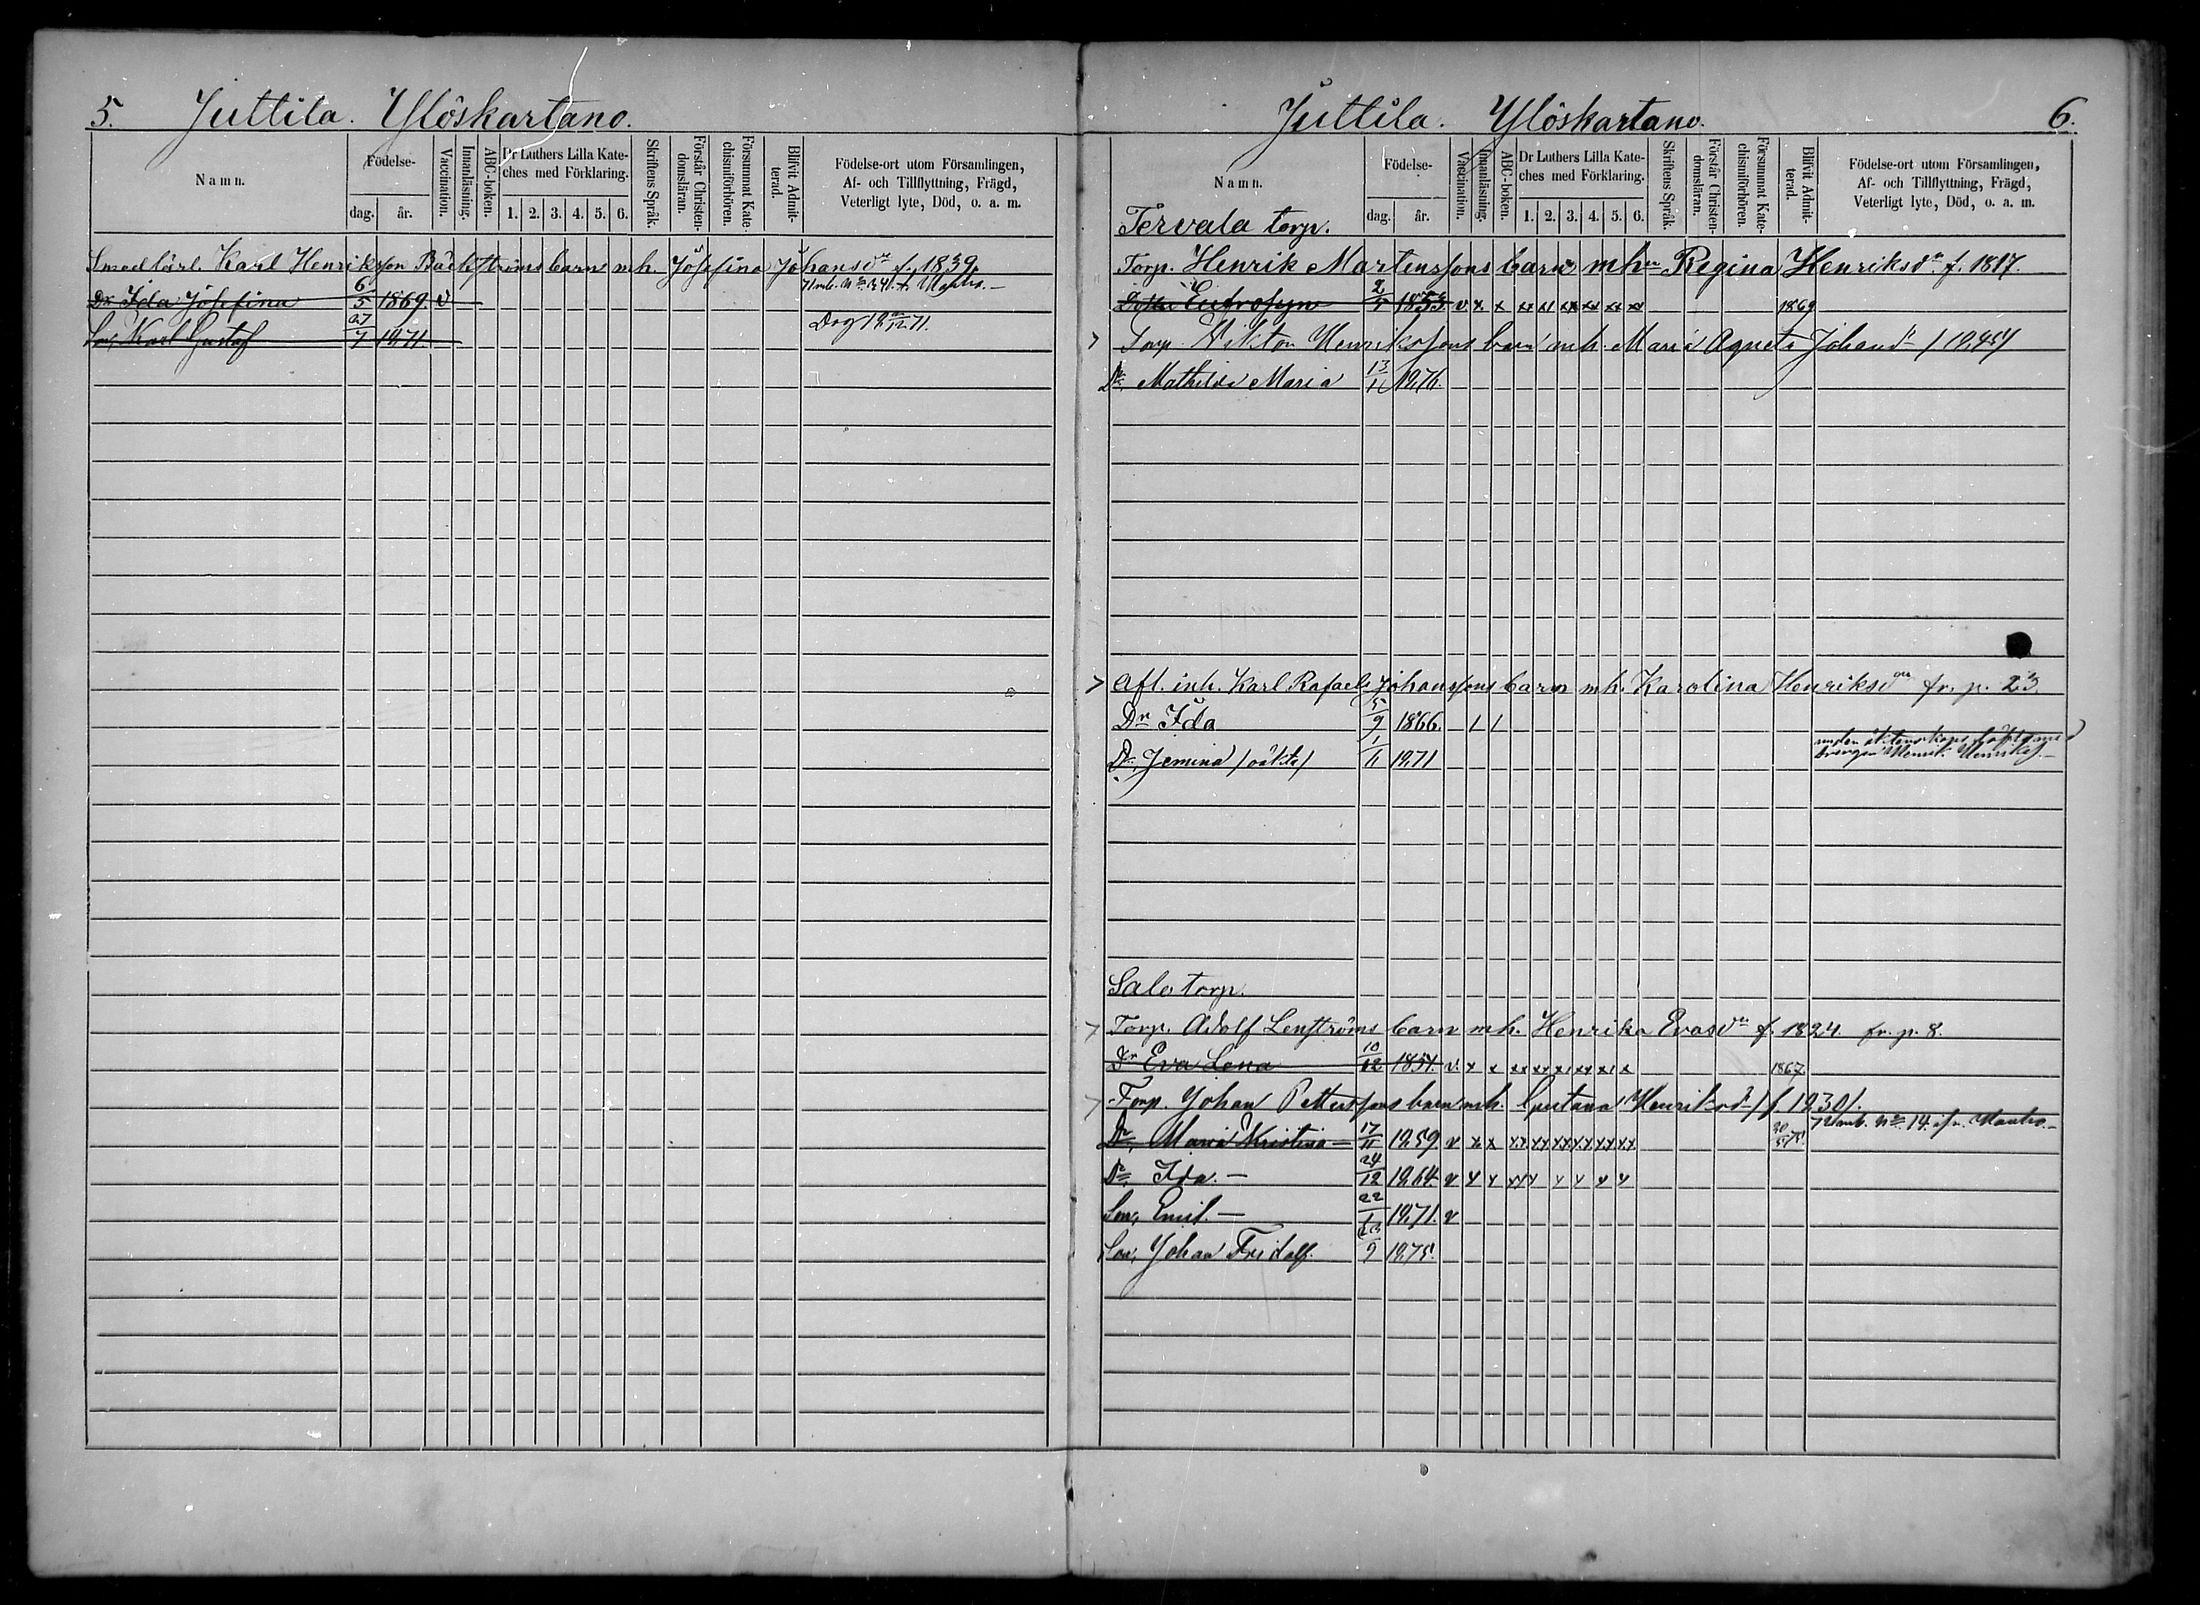 5. Juttila. Ylöskartano.
Namn.
Födelse-
dag.
år.
Vaccination.
Innanläsning.
ABC-boken.
Dr Luthers Lilla Kate-
ches med Förklaring.
1. 2. 3. 4. 5. 6.
Skriftens Språk.
Förstår Christen-
domsläran.
Försummat Kate-
chismiförhören.
Blifvit Admit-
terad.
Födelse-ort utom Församlingen,
Af- och Tillflyttning, Frägd,
Veterligt lyte, Död, o. a. m.
Karl Henriksson Bäckströms barn mh. Josefina Johansdr f. 1839.
Dr Ida Josefina 6/5 1869. v
Son, Karl Gustaf 27/7 1871. Dog
Juttila. Ylöskartano. 6.
Namn.
Födelse-
dag.
år.
Vaccination.
Innanläsning.
ABC-boken.
Dr Luthers Lilla Kate-
ches med Förklaring.
1. 2. 3. 4. 5. 6.
Skriftens Språk.
Förstår Christen-
domsläran.
Försummat Kate-
chismiförhören.
Blifvit Admit-
terad.
Födelse-ort utom Församlingen,
Af- och Tillflyttning, Frägd,
Veterligt lyte, Död, o. a. m.
Tervala torp.
Torp. Henrik Martenssons barn mhu Regina Henriksdr f. 1817.
Eufrosyn 2/5 1853. v x x xx xx xx xx xx xx 1869
Torp. Viktor Henrikssons barn mh. Maria Agneta Johansdr
Dr. Mathilda Maria 13/11 1876.
Afl. inh. Karl Rafael Johanssons barn mh. Karolina Henriksdr fr. p. 23
Dr Ida 5/9 1866. / /
Dr. Jemina /oäkta/ 1/11 1871
Salo torp.
Torp. Adolf Lenströms barn mh. Henrika Evasdr f. 1824. fr. p. 8.
Dr Eva Lena 10/12 1851. v. x x xx xx xx xx x x 1867
Torp. Johan Petterssons barn mh. Gustava Henriksdr /f. 1830/.
Dr. Maria Kristina — 17/11 1859 v x x xx xx xx xx xx xx
Dr. Ida. — 24/12 1864 v x x xx x x x x x
Son, Emil. — 22/1 1871. v
Son, Johan Fridolf. 23/9 1875.